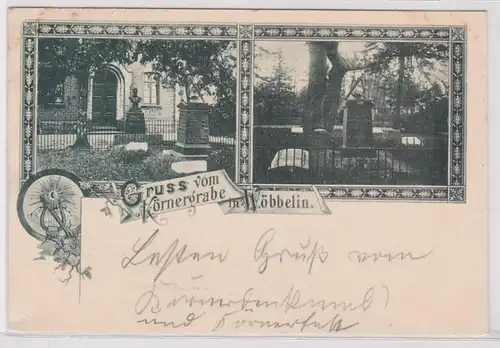 Gruss vom
Körnergrabe in Wöbbelin.
Besten Gruß vom
Körnerdenkmal
und Körnerfest